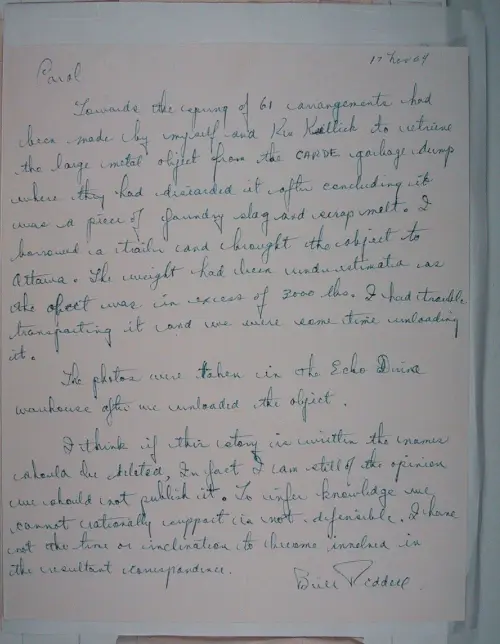 17 Nov 69
Carol
Towards the spring of 61 arrangements had
been made by myself and Ken Killick to retrieve
the large metal object from the CARDE garbage dump
where they had discarded it after concluding it
was a piece of foundry slag and scrap melt. I
borrowed a trailer and brought the object to
Ottawa. The weight had been underestimated as
the object was in excess of 3000 lbs. I had trouble
transporting it and we were some time unloading
it.
The photos were taken in the Echo Drive
warehouse after we unloaded the object.
I think if this story is written the names
should be deleted, In fact I am still of the opinion
we should not publish it. To infer knowledge we
cannot rationally support is not defensible. I have
not the time or inclination to become involved in
the resultant correspondence.
Bill